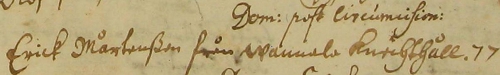 Dom: post Circumcision:
Erick Mårtenßon från Wannala Knechthåll. 77